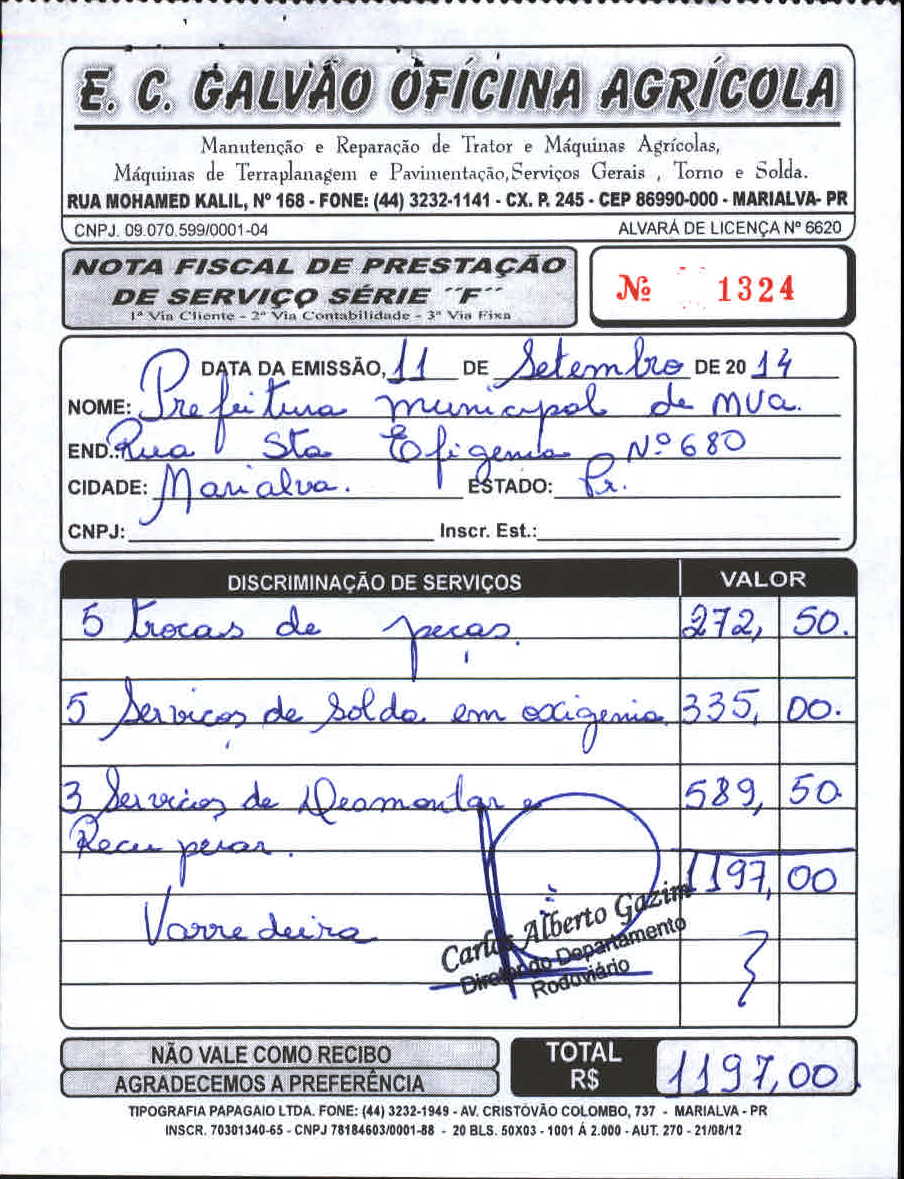 E. C. GALVÃO OFÍCINA AGRÍCOLA
Manutenção e Reparação de Trator e Máquinas Agrícolas,
Máquinas de Terraplanagem e Pavimentação,Serviços Gerais , Torno e Solda.
RUA MOHAMED KALIL, Nº 168 - FONE: (44) 3232-1141 - CX. P. 245 - CEP 86990-000 - MARIALVA- PR
CNPJ. 09.070.599/0001-04 ALVARÁ DE LICENÇA Nº 6620
NOTA FISCAL DE PRESTAÇÃO
DE SERVIÇO SÉRIE "F"
1ª Via Cliente - 2ª Via Contabilidade - 3ª Via Fixa
Nº 1324
DATA DA EMISSÃO, 11 DE Setembro DE 20 14
NOME: Prefeitura municipal de MVa.
END.: Rua Sta Efigenia Nº 680
CIDADE: Marialva. ESTADO: Pr.
CNPJ: Inscr. Est.:
DISCRIMINAÇÃO DE SERVIÇOS VALOR
5 trocas de peças. 272, 50.
5 Serviços de Solda em oxigenia 335, 00.
3 Serviços de Desmontar e 589, 50
Recuperar.
1197, 00
Varredeira
Carlos Alberto Gazim
Diretor do Departamento
Rodoviário
NÃO VALE COMO RECIBO
AGRADECEMOS A PREFERÊNCIA
TOTAL
R$ 1197,00
TIPOGRAFIA PAPAGAIO LTDA. FONE: (44) 3232-1949 - AV. CRISTÓVÃO COLOMBO, 737 - MARIALVA - PR
INSCR. 70301340-65 - CNPJ 78184603/0001-88 - 20 BLS. 50X03 - 1001 Á 2.000 - AUT. 270 - 21/08/12